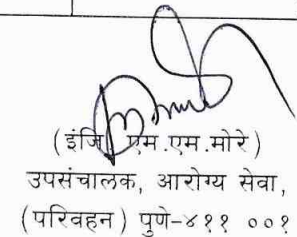 (इंजि. एम.एम.मोरे)
उपसंचालक, आरोग्य सेवा,
(परिवहन) पुणे-४११ ००१